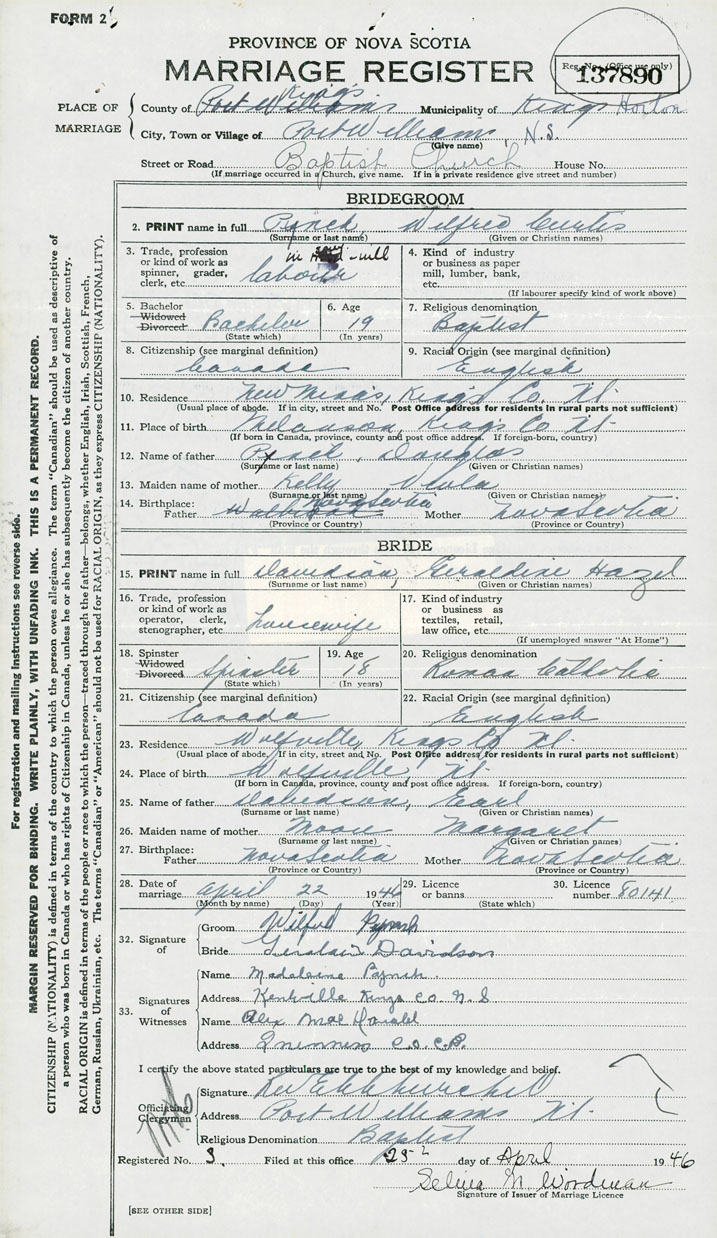 FORM 2
PROVINCE OF NOVA SCOTIA
MARRIAGE REGISTER
Reg. No. (Office use only)
137890
PLACE OF MARRIAGE
County of Port Williams Kings Municipality of Kings Horton
City, Town or Village of Port Williams, N.S.
(Give name)
Street or Road Baptist Church House No.
(If marriage occurred in a Church, give name. If in a private residence give street and number)
BRIDEGROOM
2. PRINT name in full Pynch, Wilfred Curtis
(Surname or last name) (Given or Christian names)
3. Trade, profession or kind of work as spinner, grader, clerk, etc. labour in mill
4. Kind of industry or business as paper mill, lumber, bank, etc.
(If labourer specify kind of work above)
5. Bachelor Widowed Divorced Bachelor
(State which)
6. Age 19
(In years)
7. Religious denomination
Baptist
8. Citizenship (see marginal definition)
Canada
9. Racial Origin (see marginal definition)
English
10. Residence New Minas, Kings Co. NS.
(Usual place of abode. If in city, street and No. Post Office address for residents in rural parts not sufficient)
11. Place of birth Melanson, Kings Co NS.
(If born in Canada, province, county and post office address. If foreign-born, country)
12. Name of father Pynch, Douglas
(Surname or last name) (Given or Christian names)
13. Maiden name of mother Kelly
(Surname or last name) (Given or Christian names)
14. Birthplace: Father Nova Scotia Mother Nova Scotia
(Province or Country) (Province or Country)
BRIDE
15. PRINT name in full Davidson, Geraldine Hazel
(Surname or last name) (Given or Christian names)
16. Trade, profession or kind of work as operator, clerk, stenographer, etc. housewife
17. Kind of industry or business as textiles, retail, law office, etc.
(If unemployed answer "At Home")
18. Spinster Widowed Divorced Spinster
(State which)
19. Age 18
(In years)
20. Religious denomination
Roman Catholic
21. Citizenship (see marginal definition)
Canada
22. Racial Origin (see marginal definition)
English
23. Residence Wolfville, Kings Co NS.
(Usual place of abode. If in city, street and No. Post Office address for residents in rural parts not sufficient)
24. Place of birth Wolfville, NS.
(If born in Canada, province, county and post office address. If foreign-born, country)
25. Name of father Davidson, Earl
(Surname or last name) (Given or Christian names)
26. Maiden name of mother Moore Margaret
(Surname or last name) (Given or Christian names)
27. Birthplace: Father Nova Scotia Mother Nova Scotia
(Province or Country) (Province or Country)
28. Date of marriage April 22 1946
(Month by name) (Day) (Year)
29. Licence or banns
(State which)
30. Licence number 80141
32. Signature of
Groom Wilfred Pynch
Bride Geraldine Davidson
33. Signatures of Witnesses
Name Madelaine Pynch
Address Kentville Kings Co. N S
Name Alex MacDonald
Address Inverness Co. C.B.
I certify the above stated particulars are true to the best of my knowledge and belief.
Officiating Clergyman
Signature Rev
Address Port Williams NS.
Religious Denomination Baptist
Registered No. 3 Filed at this office 25 day of April 1946
Selina M. Woodman
Signature of Issuer of Marriage Licence
[SEE OTHER SIDE]
For registration and mailing instructions see reverse side.
MARGIN RESERVED FOR BINDING. WRITE PLAINLY, WITH UNFADING INK. THIS IS A PERMANENT RECORD.
CITIZENSHIP (NATIONALITY) is defined in terms of the country to which the person owes allegiance. The term "Canadian" should be used as descriptive of
a person who was born in Canada or who has rights of Citizenship in Canada, unless he or she has subsequently become the citizen of another country.
RACIAL ORIGIN is defined in terms of the people or race to which the person—traced through the father—belongs, whether English, Irish, Scottish, French,
German, Russian, Ukrainian, etc. The terms "Canadian" or "American" should not be used for RACIAL ORIGIN, as they express CITIZENSHIP (NATIONALITY).